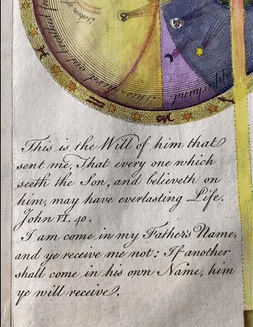 This is the Will of him that
sent me, That every one which
seeth the Son, and believeth on
him, may have everlasting Life.
John VI. 40.
I am come in my Father's Name,
and ye receive me not: If another
shall come in his own Name, him
ye will receive.